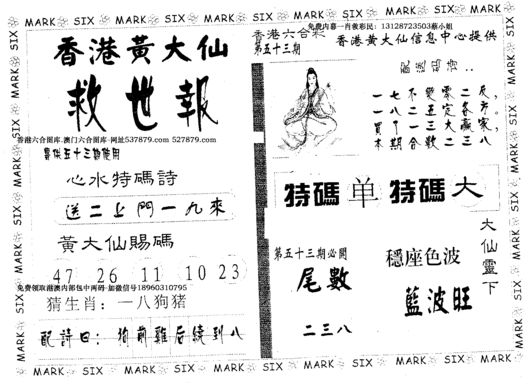 MARK SIX MARK SIX MARK SIX MARK SIX MARK SIX MARK SIX
香港黃大仙
救世報
香港六合图库.澳门六合图库-网址537879.com 527879.com
專供五十三期使用
心水特碼詩
送二上門一九來
黃大仙賜碼
47 26 11 10 23
免费领取港澳内部包中两码 加微信号18960310795
猜生肖：一八狗猪
配詩曰：狗前雞后續到八
免费内幕一肖救彩民：13128723503蔡小姐
香港六合彩
第五十三期
香港黃大仙信息中心提供
一七不變零二反，
一八二五定各方。
買一一三大贏家，
本期合數二三八
特碼单特碼大
第五十三期必開
尾數
二三八
穩座色波
藍波旺
大仙靈下
MARK SIX MARK SIX MARK SIX MARK SIX MARK SIX MARK SIX